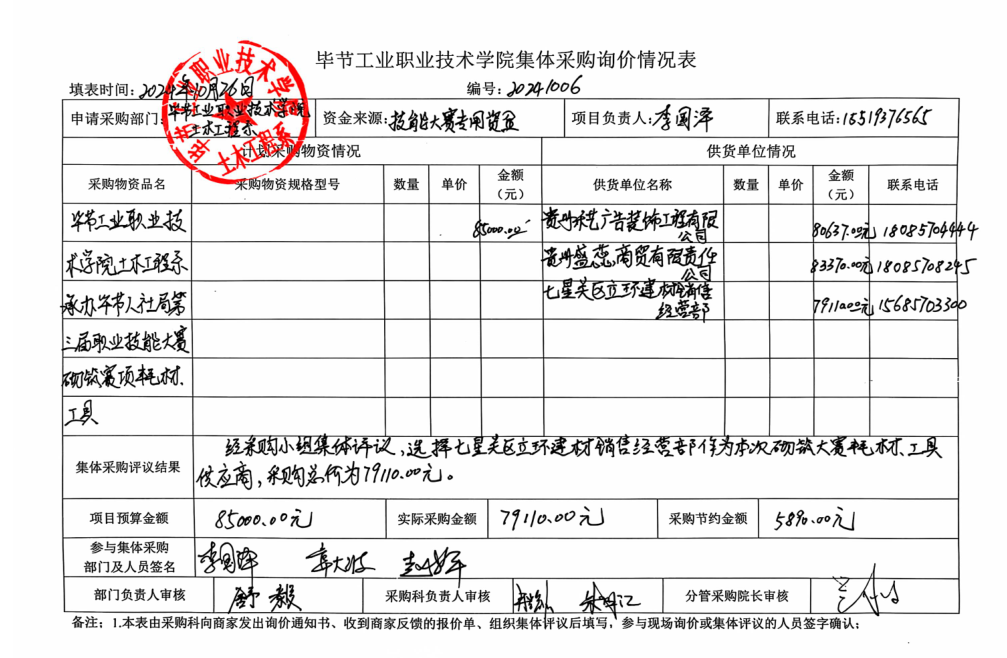 毕节工业职业技术学院集体采购询价情况表
填表时间: 2024年10月26日 编号: 20241006
申请采购部门: 毕节工业职业技术学院土木工程系 资金来源: 技能大赛专用资金 项目负责人: 李国泽 联系电话: 18519376565
毕节工业职业技术学院
土木工程系
计划采购物资情况 供货单位情况
采购物资品名 采购物资规格型号 数量 单价 金额（元） 供货单位名称 数量 单价 金额（元） 联系电话
毕节工业职业技 85000.00 贵州禾艺广告装饰工程有限公司 80637.00元 18085704444
术学院土木工程系 贵州盛蕊商贸有限责任公司 83370.00元 18085708245
承办毕节人社局第 七星关区立环建材销售经营部 79110.00元 15685703300
三届职业技能大赛
砌筑赛项耗材、
工具
集体采购评议结果 经采购小组集体评议，选择七星关区立环建材销售经营部作为本次砌筑大赛耗材、工具
供应商，采购总价为79110.00元。
项目预算金额 85000.00元 实际采购金额 79110.00元 采购节约金额 5890.00元
参与集体采购
部门及人员签名 李国泽
部门负责人审核 舒毅 采购科负责人审核 分管采购院长审核
备注：1.本表由采购科向商家发出询价通知书、收到商家反馈的报价单、组织集体评议后填写，参与现场询价或集体评议的人员签字确认；